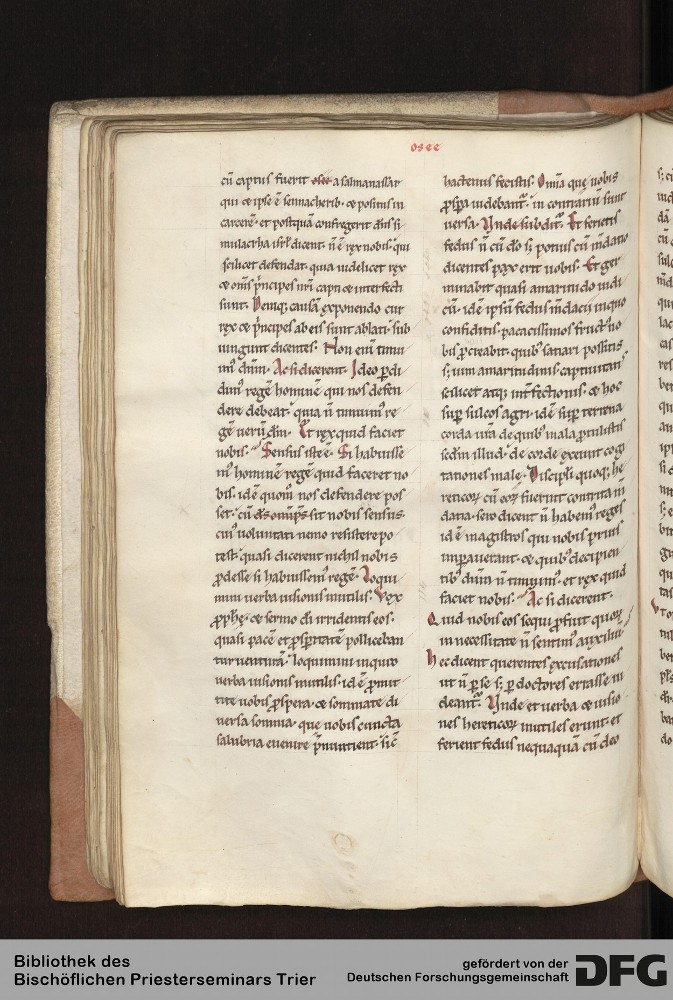 osee
cū captus fuerit osee a salmanassar
qui & ipse ē sennacherib. & positus in
carcere. et postquā confregerit dn̄s si
mulachra isrł dicent. n̄ ē rex nobis. qui
scilicet defendat. quia uidelicet rex
& om̄s p̄ncipes nr̄i capti & interfecti
sunt. Deniq; causā exponendo cur
rex & p̄ncipes ab eis sunt ablati. sub
iungunt dicentes. Non eni timu
im᷒ dn̄m. Ac si dicerent. Ideo pdi
dim᷒ regē hominē qui nos defen
dere debeat. quia n̄ timuim᷒ re
gē uerū dn̄m. Et rex quid faciet
nobis. Sensus iste ē. Si habuisse
m᷒ hominē regē quid faceret no
bis. idē quom᷒ nos defendere pos
set. cū dr̄s om̄ps sit nobis sensus.
cui᷒ uoluntati nemo resistere po
test. quasi dicerent nichil nobis
pdesse si habuissem᷒ regē. Loqui
mini uerba uisionis inutilis. Vox
pphe. & sermo dī irridentis eos.
quasi pacē et psperitatē polliceban
tur uenturā. loquimini inquit
uerba uisionis inutilis. idē pmit
tite uobis pspera. & somniate di
uersa somnia. que uobis cuncta
salubria euenire p̄nuntient. sic
hactenus fecistis. Omīa que uobis
pspa uidebant᷒. in contrariū sunt
uersa. Unde subdit᷒. Et ferietis
fedus n̄ cū dō s; potius cū mdatio
dicentes pax erit nobis. Et ger
minabit quasi amaritudo iudi
ciū. idē ipsū fedus mdacii in quo
confiditis. pacacissimos fruct᷒ no
bis pcreabit. quib᷒ satiari possitis
s; uim amaritudinis captiuitatis
scilicet atq; intfectionis. & hoc
sup sulcos agri. idē sup terrena
corda ur̄a de quib᷒ mala ptulistis
scdm illud. de corde exeunt cogi
tationes male. Discipli quoq; he
reticoꝝ cū eoꝝ fuerint contrita m̄
datia. sero dicent n̄ habem᷒ reges
id ē magistros qui nobis prius
imperauerant. & quib᷒ decipien
tib᷒ dn̄m n̄ timuim᷒. et rex quid
faciet nobis. Ac si dicerent.
Quid nobis eos sequi pfuit quoꝝ
in necessitate n̄ sentim᷒ auxiliū
Hec dicent querentes excusationes
ut n̄ p se s; p doctores errasse ui
deant᷒. Unde et uerba & uisio
nes hereticoꝝ inutiles erunt. et
ferient fedus nequaquā cū deo
Bibliothek des
Bischöflichen Priesterseminars Trier
gefördert von der
Deutschen Forschungsgemeinschaft
DFG